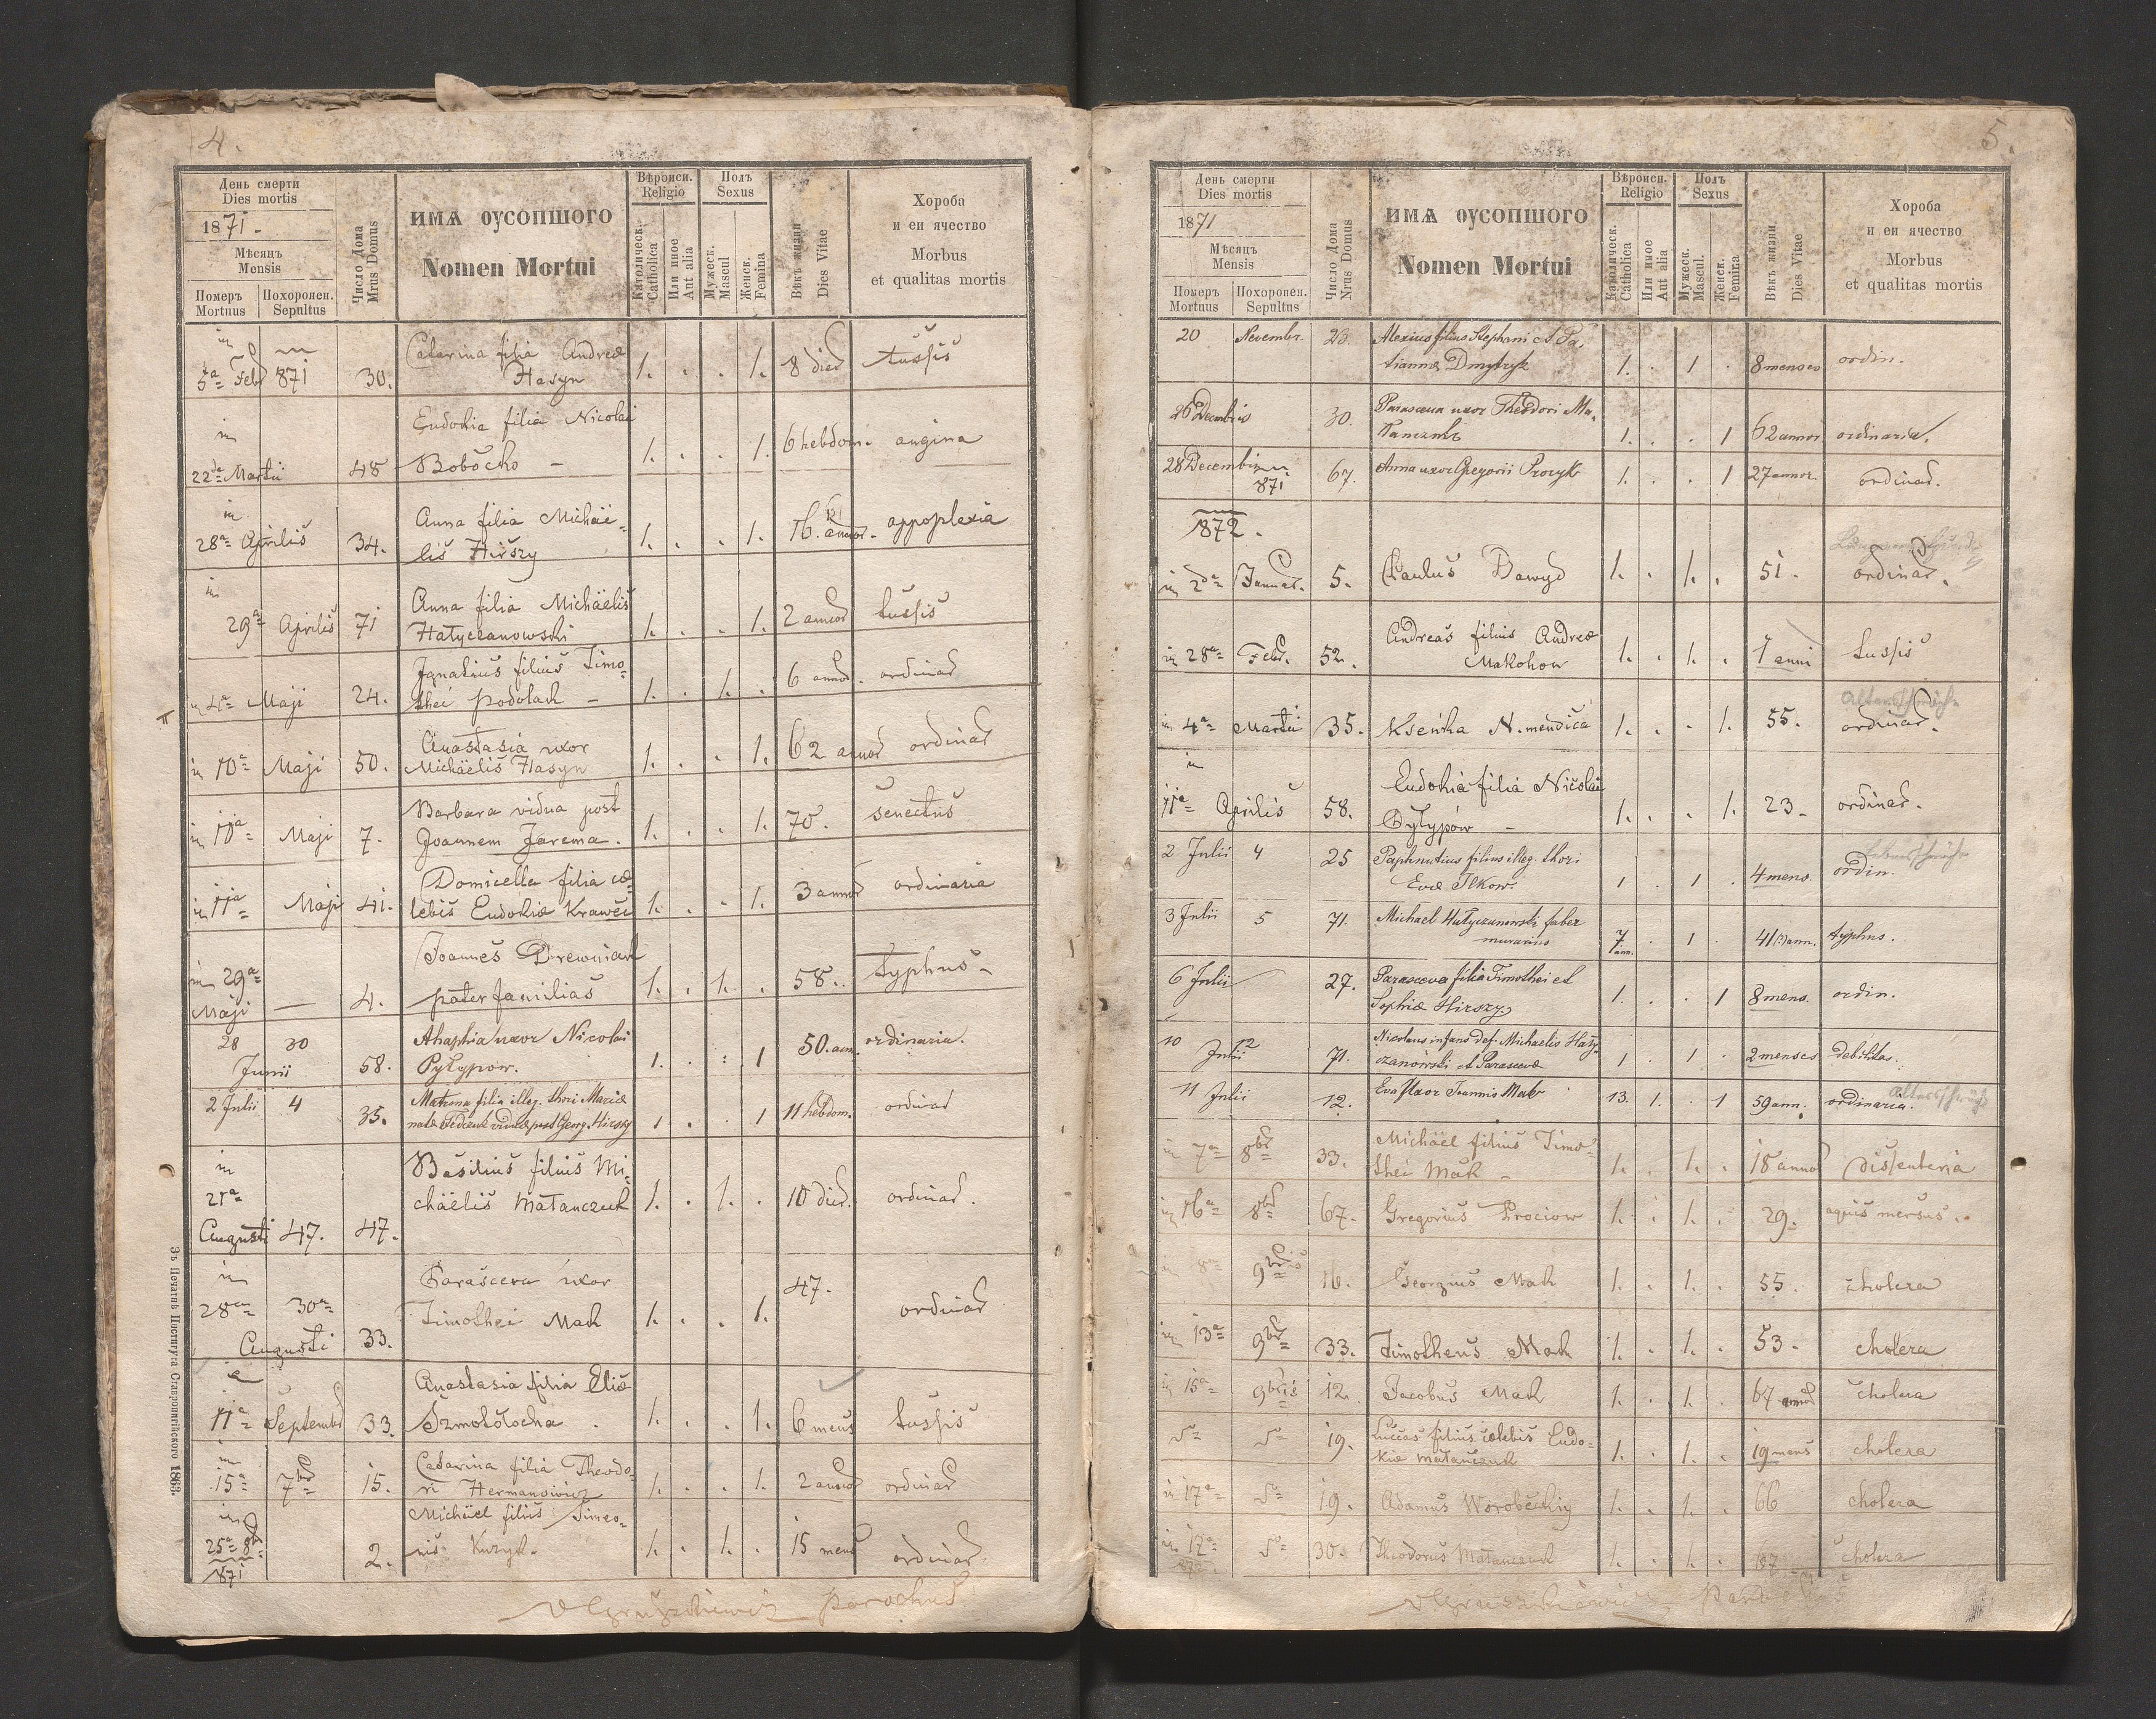 4.
День смерти
Dies mortis
1871.
Мѣсяцъ
Mensis
Померъ
Mortuus
Похоронен.
Sepultus
Число Дома
Mrus Domus
имѧ оусопшого
Nomen Mortui
Вѣроисп.
Religio
Католическ.
Catholica
Или иное
Aut alia
Полъ
Sexus
Мужеск.
Mascul
Женск.
Femina
Вѣкъ жизни
Dies Vitae
Хороба
и еи ячество
Morbus
et qualitas mortis
in 5a Feb 871 30. Catarina filia Andreæ
Hasyn 1. . . 1. 8 dies tussis
in
22da Martii 48 Eudokia filia Nicolai
Bobóčko – 1. . . 1. 6 hebdom. angina
in
28a Aprilis 34. Anna filia Michäe=
lis Hirszy 1. . . 1. 16. annor. appoplexia
in
29a Aprilis 71 Anna filia Michäelis
Hatyczanowski 1. . . 1. 2 annor tussis
in 4a Maji 24. Jgnatius filius Timo=
thei Podolach – 1. . 1. . 6 annor. ordinar
in 10a Maji 50. Anastasia uxor
Michäelis Hasyn 1. . . 1. 62 annor ordinar
in 10a Maji 7. Barbara vidua post
Joannem Jarema. 1. . . 1. 70. senectus
in 11a Maji 41. Domicella filia cæ=
lebis Eudokiæ Kraweć 1. . . 1. 3 annor ordinaria
in 29a
Maji — 4. Joannes Drewniak
pater familias 1. . 1. . 58. typhus
28 30
Junii 58. Ahaphia uxor Nicolai
Pyłypow. 1. . . 1 50. ann. ordinaria.
2 Julii 4 35. Matrona filia illeg. thori Mariæ
natæ Fedczuk viduæ post Georg. Hirszy 1 . . 1 11 hebdom. ordinar
in
21a
Augusti 47. 47. Basilius filius Mi=
chäelis Matanczuk 1. . 1. . 10 dier. ordinar.
in
28a 30a
Augusti 33. Parasceva uxor
Timothei Mak 1. . . 1. 47. ordinar
in
11a Septembr 33. Anastasia filia Eliæ
Szmotołocha . 1. . . 1. 6 mens tussis
in
15a 7br 15. Catarina filia Theodo=
ri Hermanowicz 1. . . 1. 2 annor ordinar
in
25a 8br
871 2. Michäel filius Simeo=
nis Kuzyk. 1. . 1. . 15 mens ordinar.
parochus
Зъ Печатнѣ Института Ставропигійского 1863.
5.
День смерти
Dies mortis
1871
Мѣсяцъ
Mensis
Померъ
Mortuus
Похоронен.
Sepultus
Число Дома
Nrus Domus
имѧ оусопшого
Nomen Mortui
Вѣроисп.
Religio
Католическ.
Catholica
Или иное
Aut alia
Полъ
Sexus
Мужеск.
Mascul.
Женск.
Femina
Вѣкъ жизни.
Dies Vitae
Хороба
и еи ячество
Morbus
et qualitas mortis
20 Novembr. 20. Alexius filius Stephani et Ta,
tiannæ Dmytryk 1. . 1 . 8 menses ordin.
26 Decembris 30. Parasceua uxor Theodori Ma,
tanczuk 1. . . 1 62 annor ordinaria.
28 Decembris
871 67. Anna uxor Gregorii Procyk 1. . . 1 27 annor. ordinar.
1872.
in 2da Januar. 5. Paulus Dawyd 1. . 1. . 51. ordinar.
in 28a Febr. 52. Andreas filius Andreæ
Makohow 1. . 1. . 1 anni tussis
in 4a Martii 35. Ksenka N. mendica 1. . . 1. 55. Altersschwäche
ordinar.
in
11a Aprilis 58. Eudokia filia Nicolai
Pyłypów – 1. . . 1. 23. ordinar.
2 Julii 4 25 Paphnutius filius illeg. thori
Evæ Ilkow. 1 . 1 . 4 mens. ordin.
3 Julii 5 71. Michael Hatyczanowski faber
murarius 1 . 1 . 41 ann. typhus.
6 Julii 27. Parasceva filia Timothei et
Sophiæ Hirszy 1. . . 1 8 mens. ordin.
10 Julii 12 71. Nicolaus infans def. Michaelis Haty=
czanowski et Parascevæ 1 . 1 . 2 menses debilitas.
11 Julii 12. Eva Uxor Joannis Mak 13. 1. . 1 59 ann. ordinaria. Altersschwäche
in 7a 8br 33. Michäel filius Timo=
thei Mak – 1. . 1. . 18 annor dissenteria
in 16a 8br 67. Gregorius Prociow 1. . 1. . 29. aquis mersus.
in 8a 9bris 16. Georgius Mak 1. . 1. . 55. cholera
in 13a 9br 33. Timotheus Mak 1. . 1. . 53. cholera
in 15a 9bris 12. Jacobus Mak 1. . 1. . 67 annor cholera
19. Luccas filius cælebis Eudo=
kiæ Matanczuk 1. . 1. . 19 mens cholera
in 17a 19. Adamus Worobéchiy 1. . 1. . 66 cholera
in 17a
872. 30. Theodorus Matanczuk 1. . 1. . 67 cholera